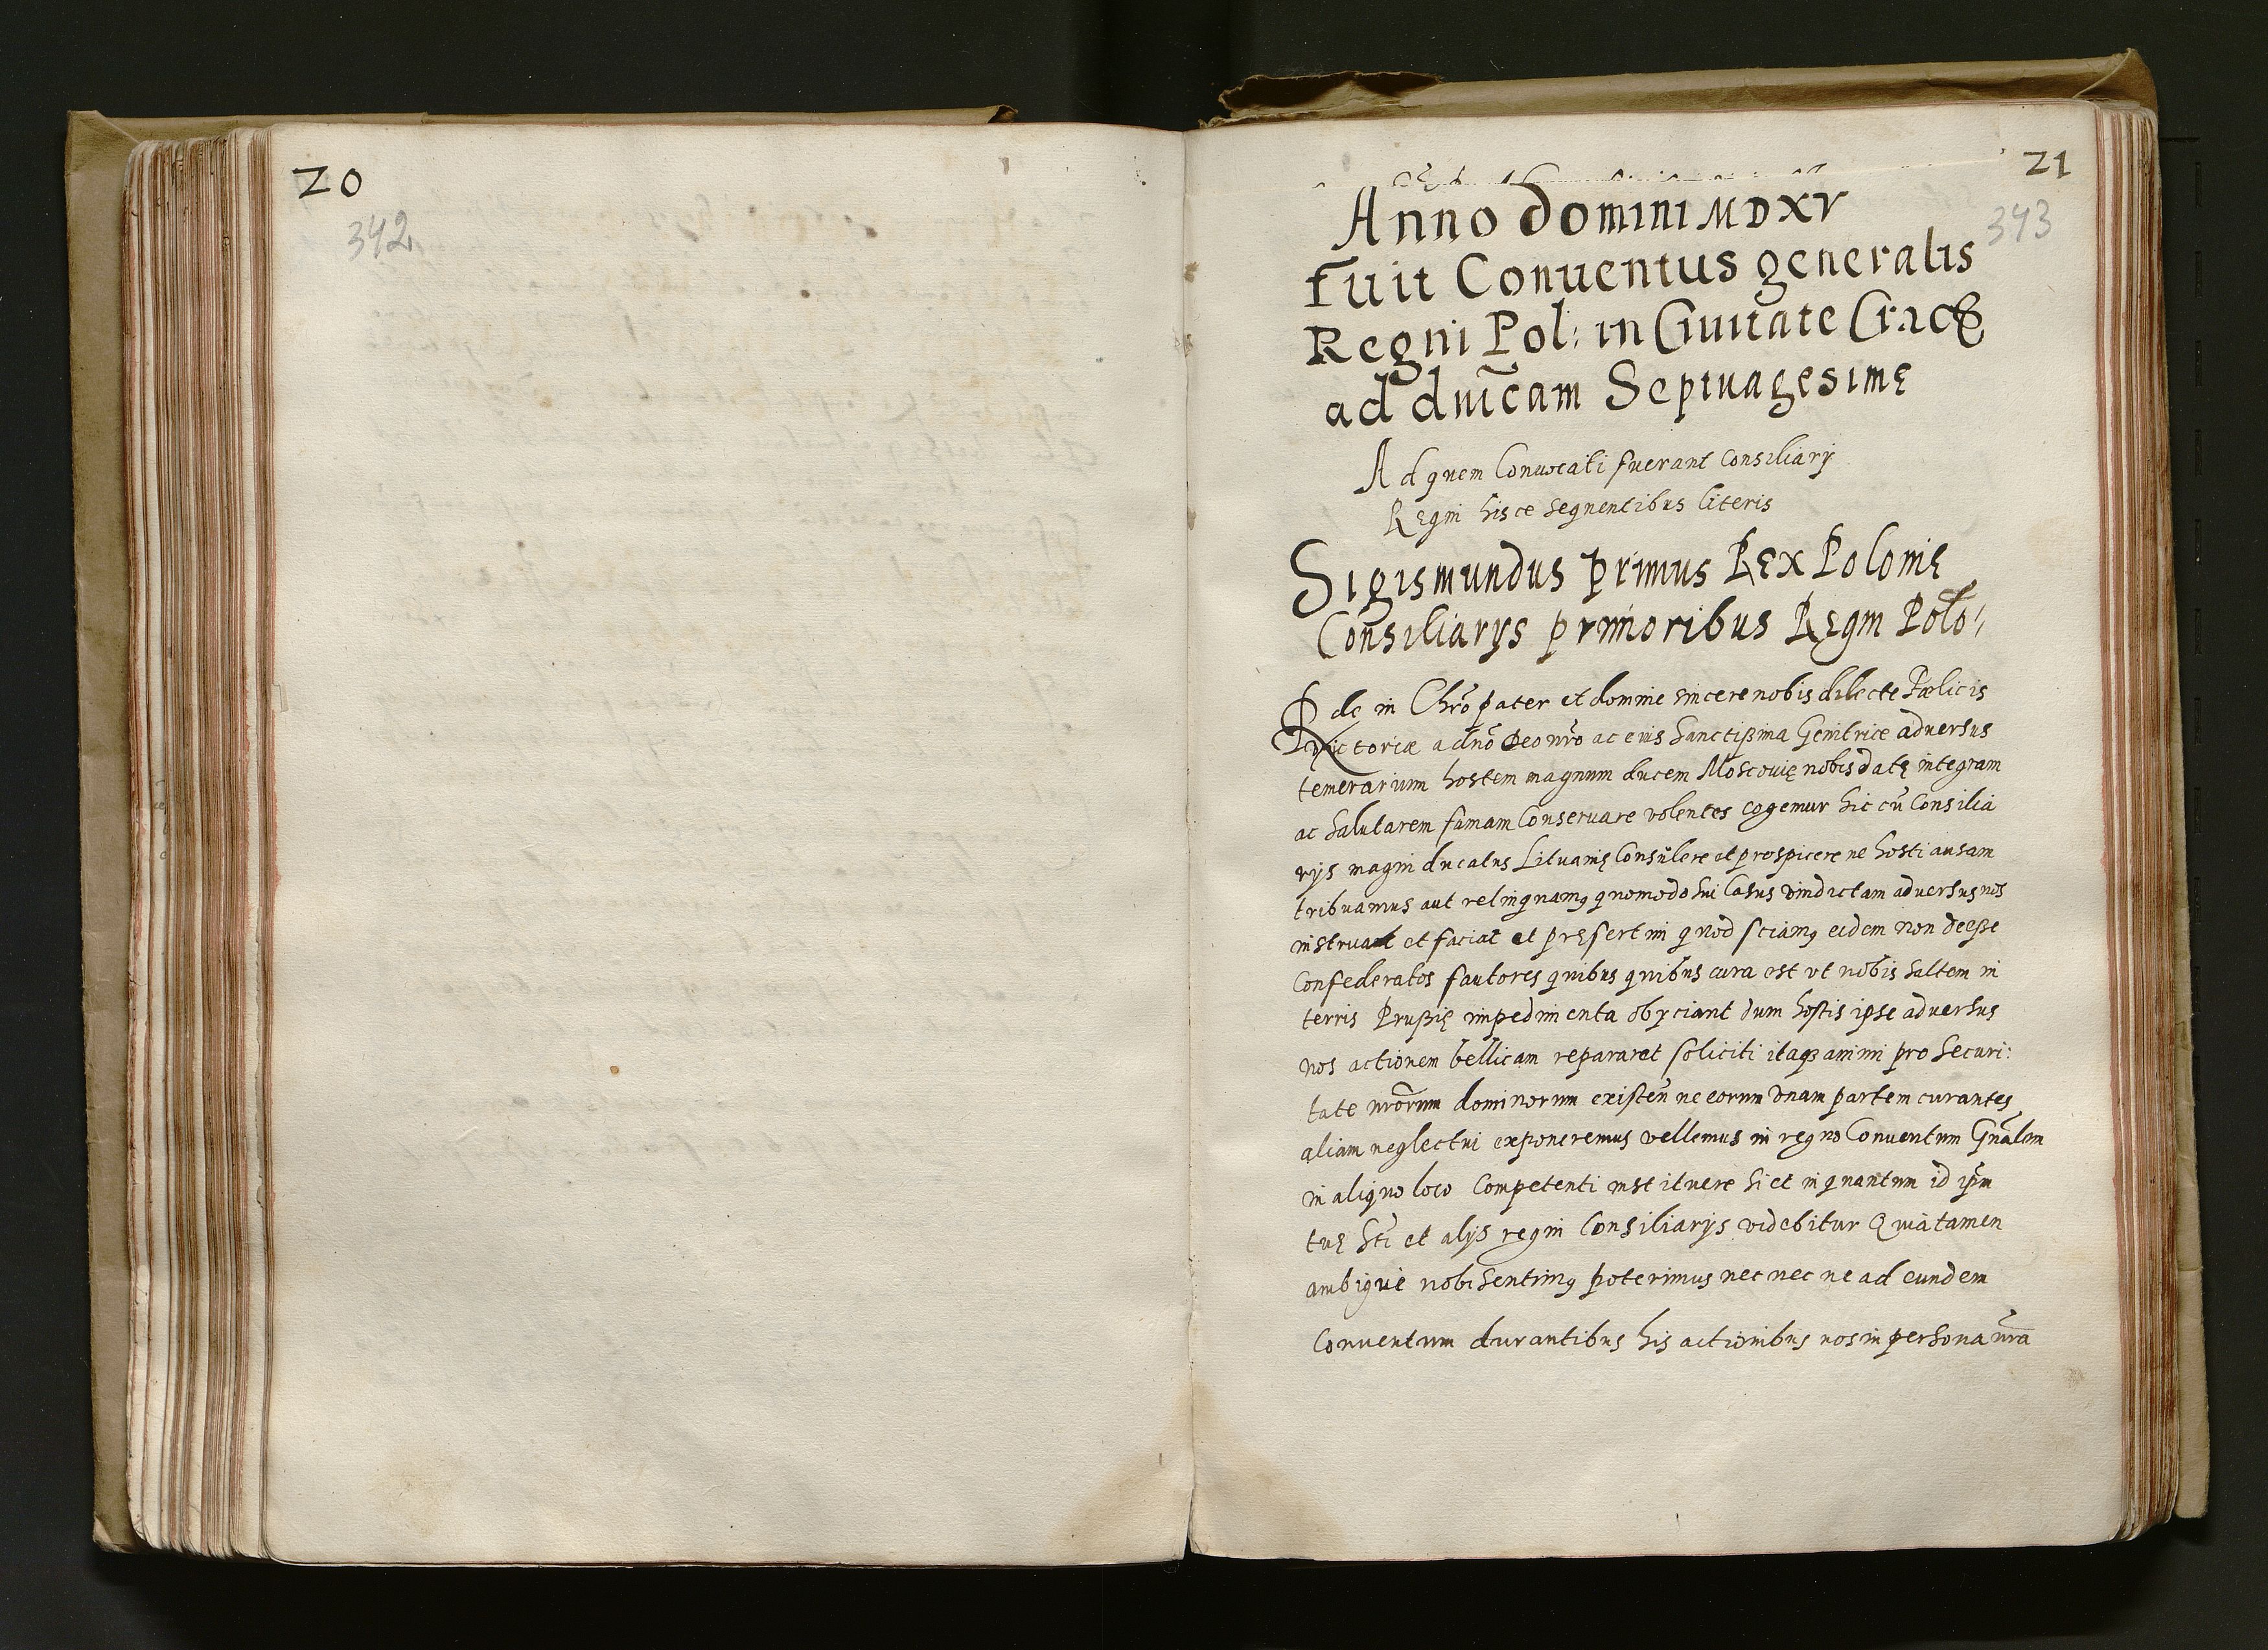 20
342
21
343
Anno Domini MDXV
fuit Conuentus generalis
Regni Pol: in Ciuitate Crac&
ad dnĩcam Septuagesimę
Ad quem Conuocati fuerant Consiliarij
Regni hisce sequentibus literis
Sigismundus primus REX Polonię
Consiliarijs primoribus Regni Polo:
Rde in Chrõ pater et domine sincere nobis dilecte Fælicis
victoriæ a dnõ Deo nrõ ac eius Sanctißima Genitrice aduersus
temerarium hostem magnum ducem Moscouię nobis datę integram
ac Salutarem famam Conseruare volentes cogemur hic cũ Consilia
rijs magni ducatus Lituanię Consulere et prospicere ne hosti ausam
tribuamus aut relinquamꝯ quomodo sui Casus vindictam aduersus nos
instruat et faciat et pręsertim quod sciamꝯ eidem non deeße
Confederatos fautores quibus quibus cura est vt nobis saltem in
terris Prußię impedimenta obijciant dum hostis ipse aduersus
nos actionem bellicam repararet soliciti itaqꝫ animi pro Securi:
tate nrõrum dominorum existeñ ne eorum vnam partem curantes
aliam neglectui exponeremus vellemus in regno Conuentum Gnãlem
in aliquo loco Competenti instituere si et in quantum id ipm̃
tuę Sti et alijs regni Consiliarijs videbitur Quia tamen
ambigue nobi sentimꝯ poterimus nec nec ne ad eundem
Conuentum durantibus his actionibus nos in persona nrã